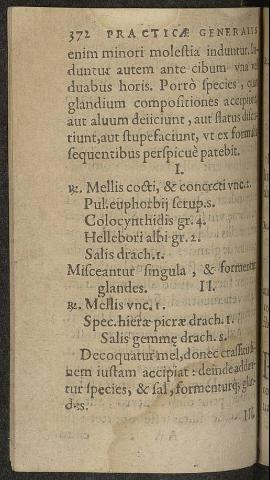 372 PRACTICÆ GENERALIS
enim minori molestia induntur. In-
duntur autem ante cibum vna
duabus horis. Porrò species,
glandium compositiones accipiunt
aut aluum deiiciunt, aut flatus discu-
tiunt, aut stupefaciunt, vt ex formulis
sequentibus perspicuè patebit.
I.
℞. Mellis cocti, & concreti vnc.
Pul. euphorbij scrup. s.
Colocynthidis gr. 4.
Hellebori albi gr. 2.
Salis drach. 1.
Misceantur singula, & formentur
glandes. II.
℞. Mellis vnc. 1.
Spec. hieræ picræ drach. 1.
Salis gemmę drach. s.
Decoquatur mel, donec crassitu-
nem iustam accipiat: deinde addan-
tur species, & sal, formenturq; glan-
des.
III.